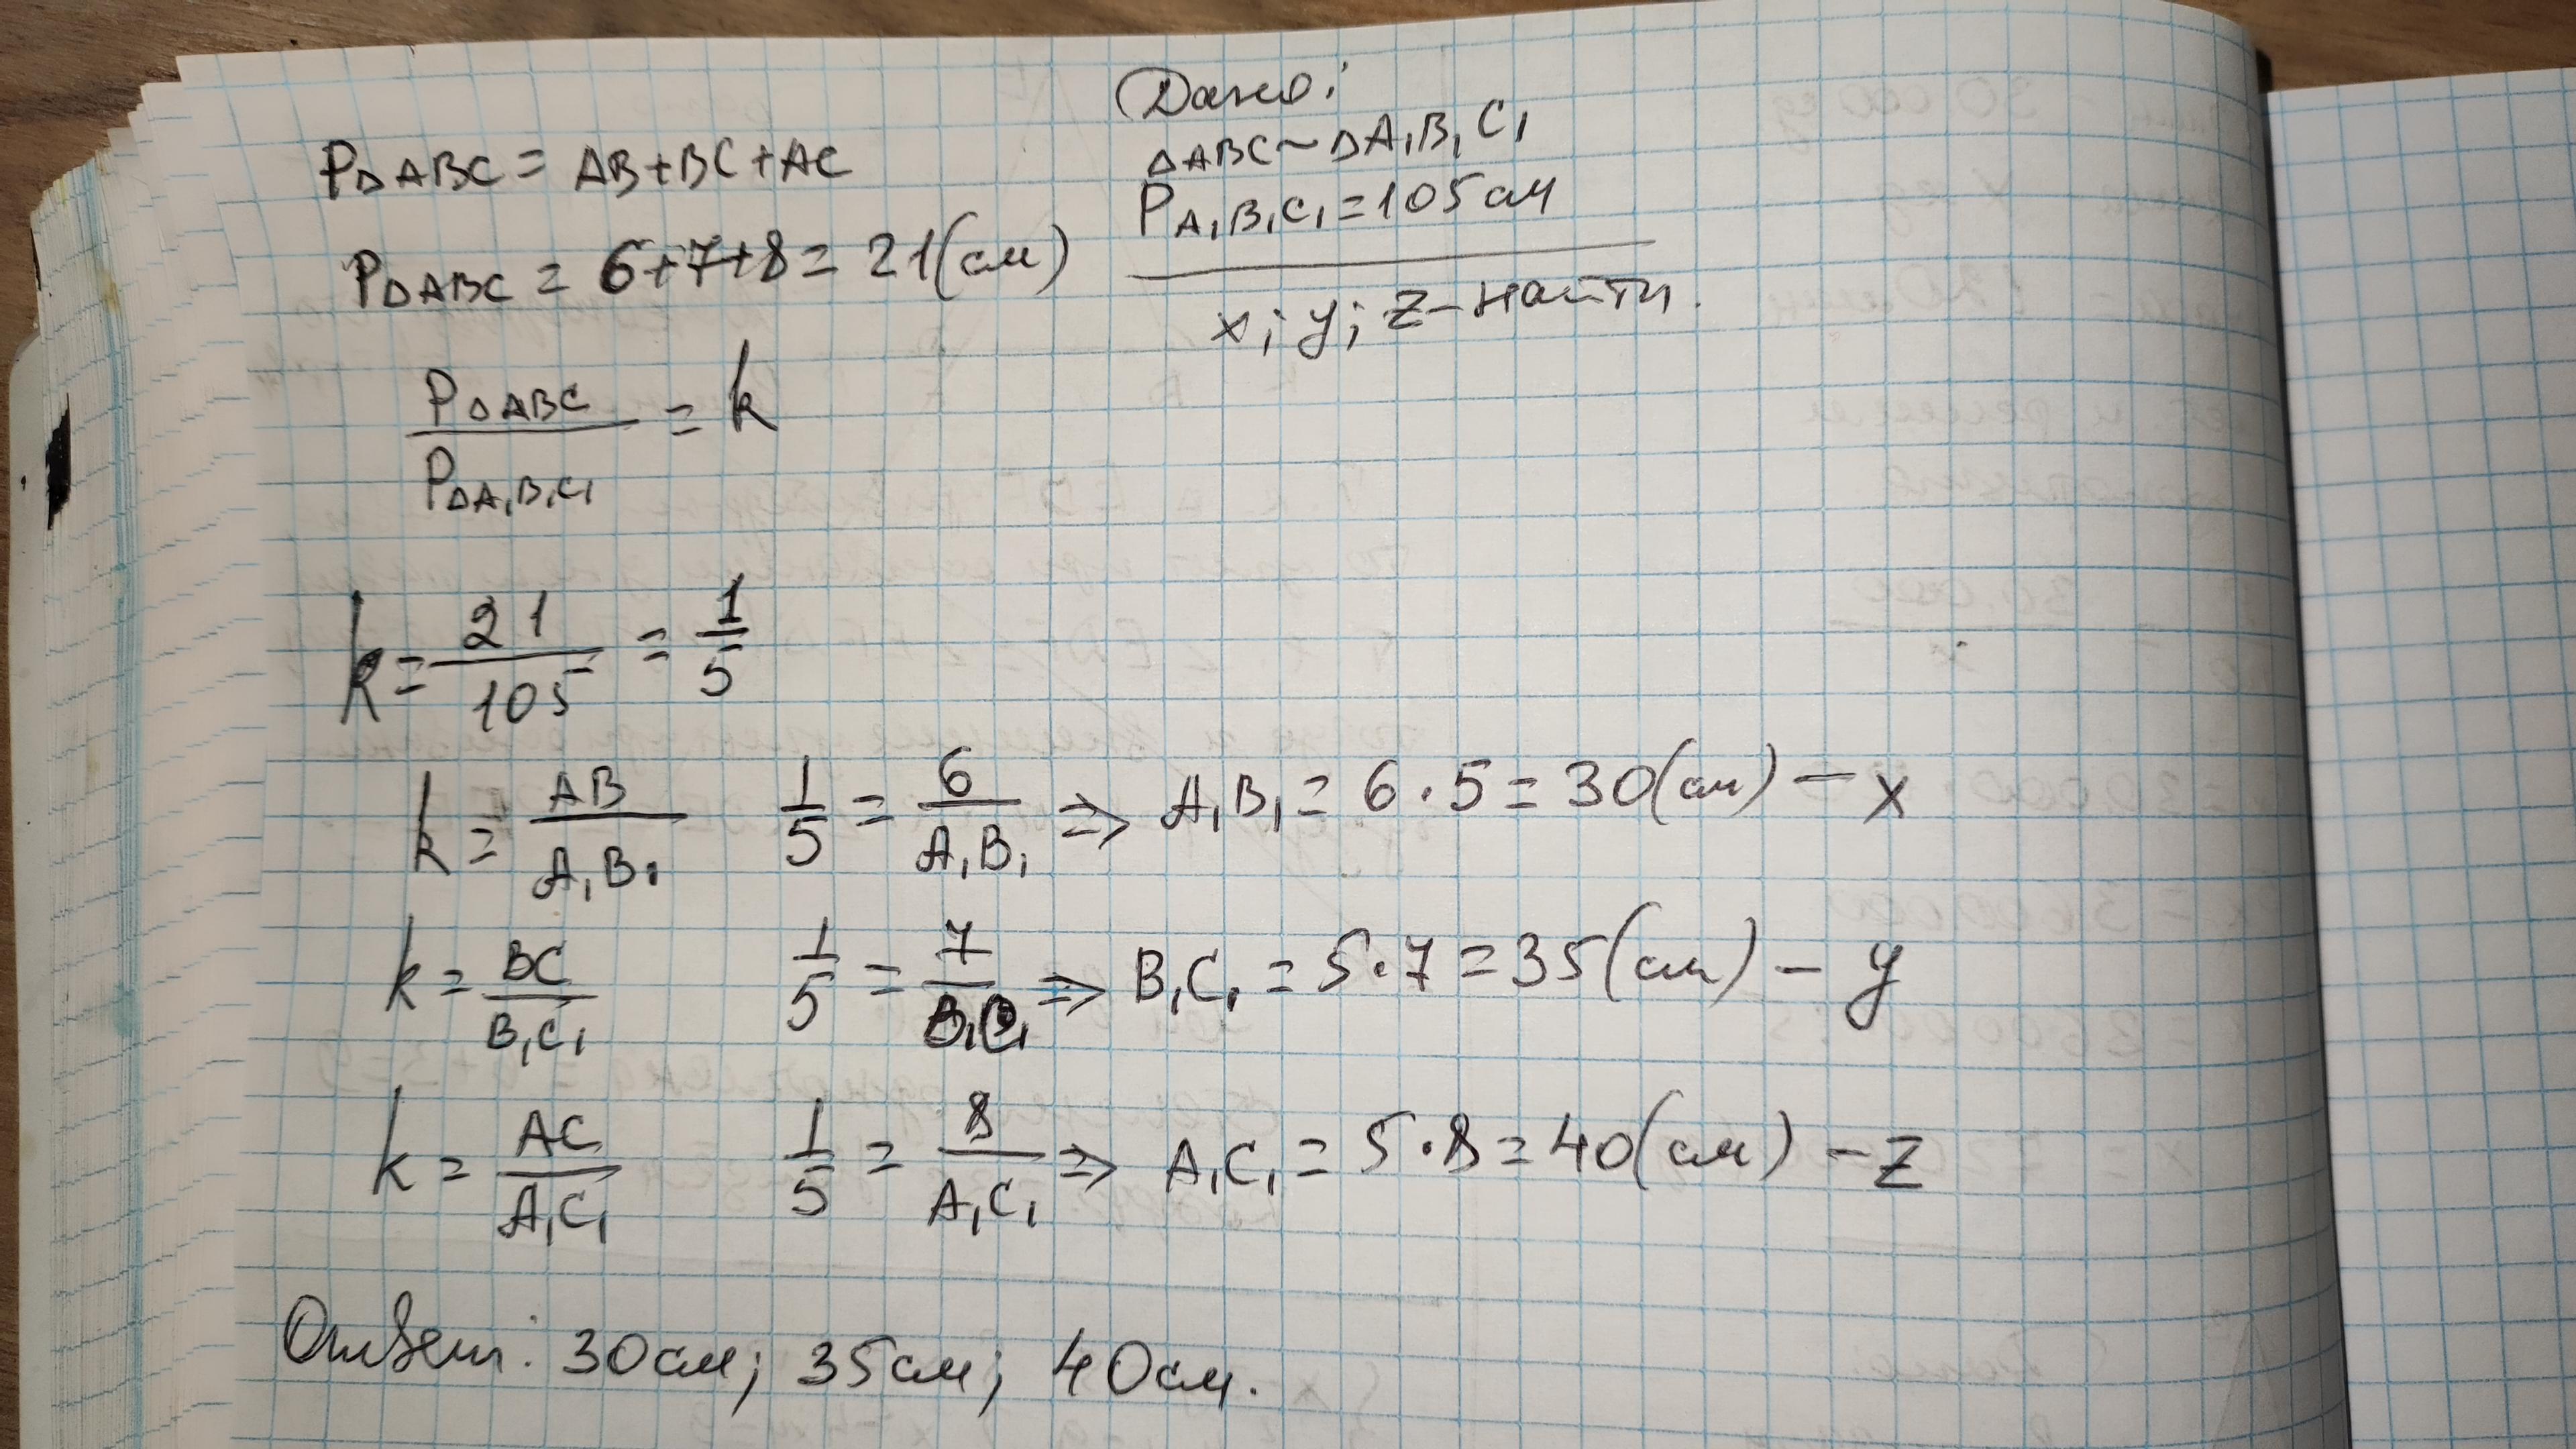 Дано:
ΔABC~ΔA₁B₁C₁
P A₁B₁C₁=105см
x; y; z-найти.
PΔABC = AB+BC+AC
PΔABC = 6+7+8=21(см)
PΔABC / PΔA₁B₁C₁ = k
k= 21/105 = 1/5
k= AB/A₁B₁ 1/5 = 6/A₁B₁ => A₁B₁ = 6·5=30(см) – x
k= BC/B₁C₁ 1/5 = 7/B₁C₁ => B₁C₁ = 5·7=35(см) – y
k= AC/A₁C₁ 1/5 = 8/A₁C₁ => A₁C₁ = 5·8=40(см) – z
Ответ: 30см; 35см; 40см.